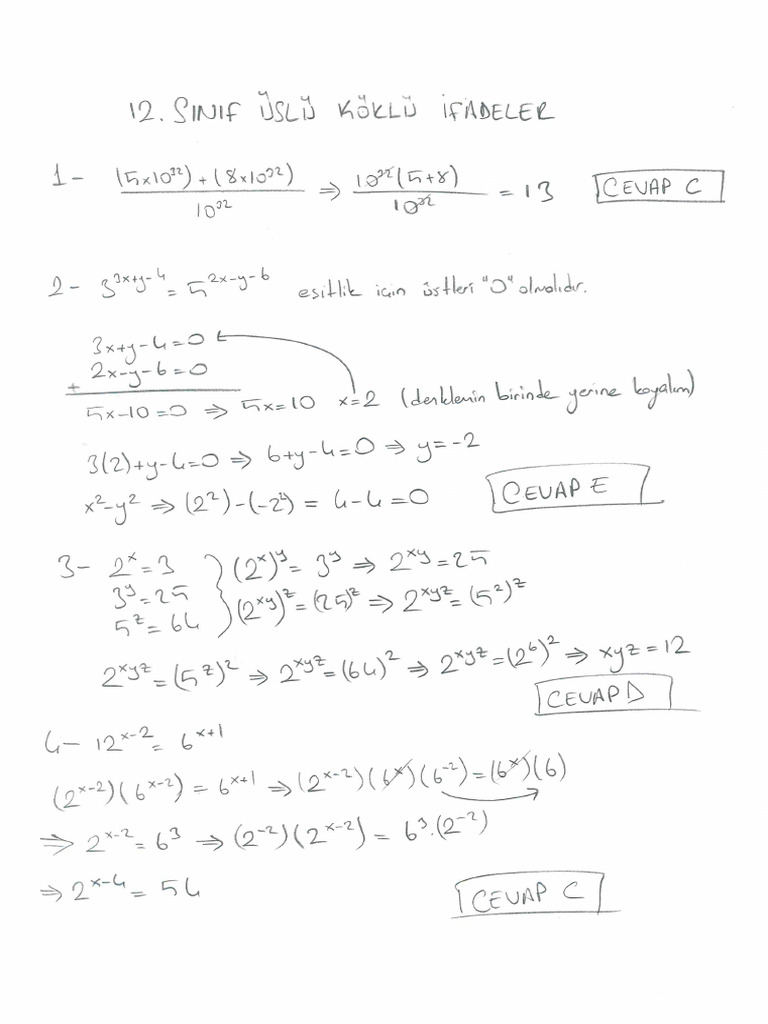 12. SINIF ÜSLÜ KÖKLÜ İFADELER
1- ((5x10³²)+(8x10³²))/10³² ⇒ (10³²(5+8))/10³² = 13 CEVAP C
2- 3^(3x+y-4) = 5^(2x-y-6) esitlik için üstleri "0" olmalıdır.
3x+y-4=0
+ 2x-y-6=0
5x-10=0 ⇒ 5x=10 x=2 (denklemin birinde yerine koyalım)
3(2)+y-4=0 ⇒ 6+y-4=0 ⇒ y=-2
x²-y² ⇒ (2²)-(-2²) = 4-4=0 CEVAP E
3- 2^x=3 } (2^x)^y = 3^y ⇒ 2^(xy)=25
3^y=25
5^z=64 (2^(xy))^z=(25)^z ⇒ 2^(xyz)=(5²)^z
2^(xyz)=(5^z)² ⇒ 2^(xyz)=(64)² ⇒ 2^(xyz)=(2⁶)² ⇒ xyz=12
CEVAP D
4- 12^(x-2) = 6^(x+1)
(2^(x-2))(6^(x-2)) = 6^(x+1) ⇒ (2^(x-2))(6^x)(6^(-2)) = (6^x)(6)
⇒ 2^(x-2) = 6³ ⇒ (2^(-2))(2^(x-2)) = 6³.(2^(-2))
⇒ 2^(x-4) = 54
CEVAP C